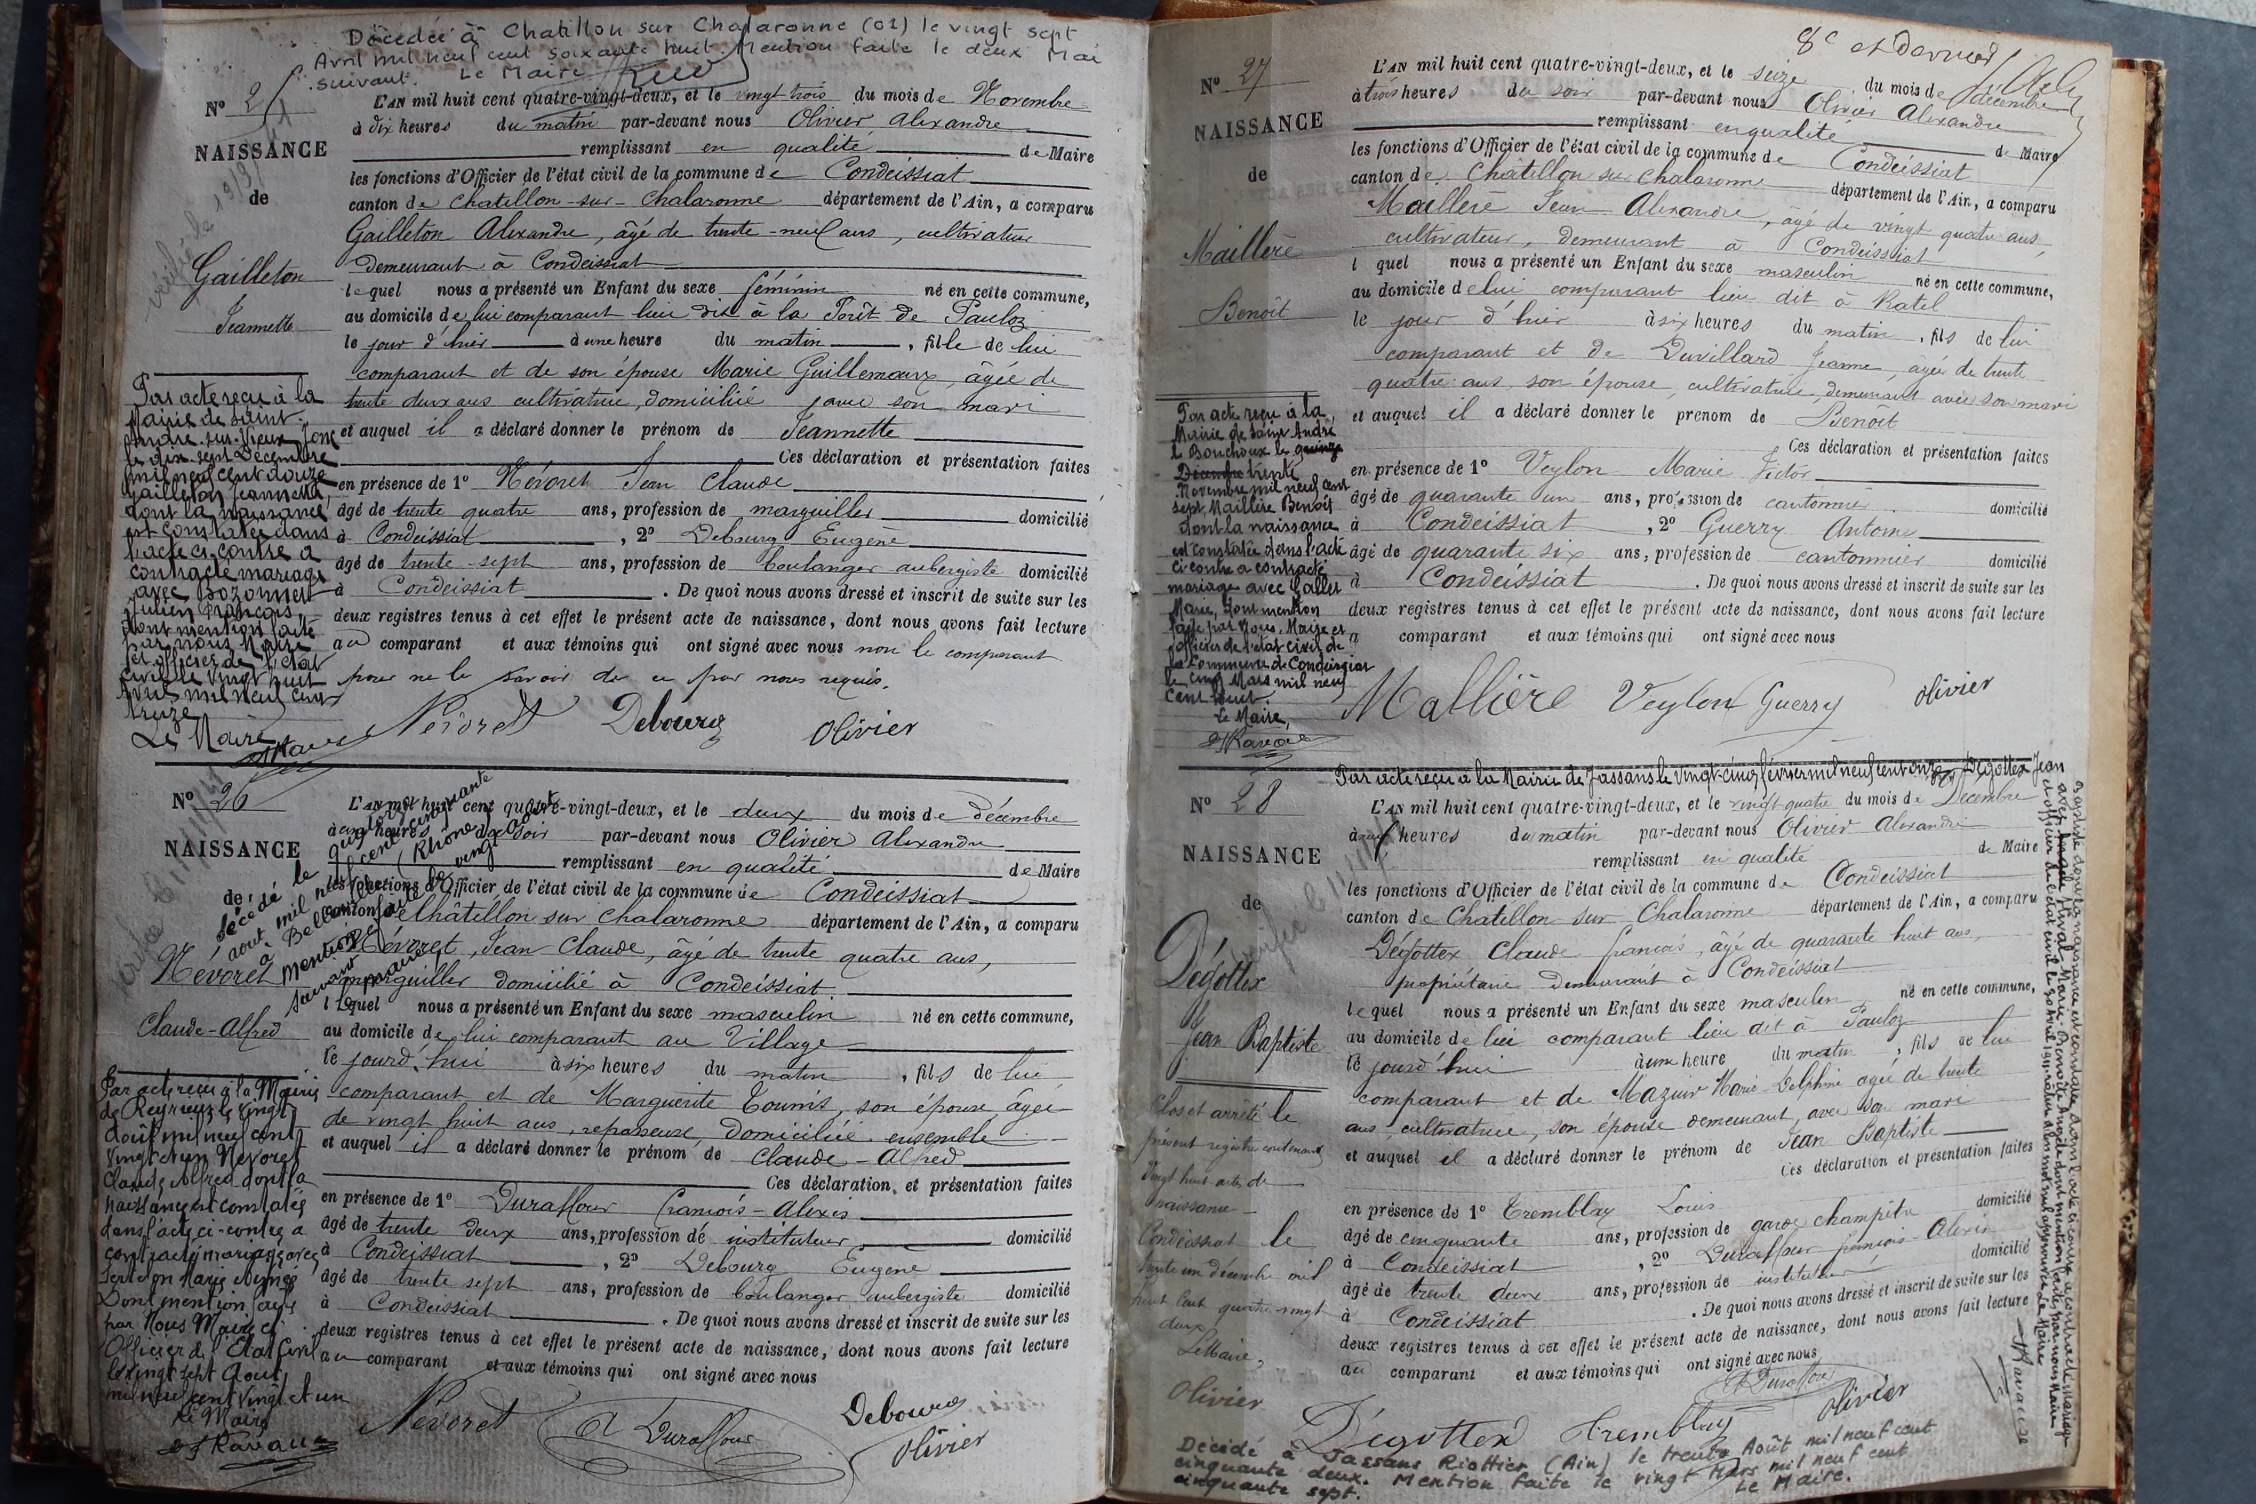 Décédée à Chatillon sur Chalaronne (01) le vingt sept
Avril mil neuf cent soixante huit. Mention faite le deux Mai
suivant. Le Maire
N° 25
NAISSANCE
de
Gailleton
Jeannette
L'AN mil huit cent quatre-vingt-deux, et le vingt trois du mois de Novembre
à dix heures du matin par-devant nous Olivier Alexandre
remplissant en qualité de Maire
les fonctions d'Officier de l'état civil de la commune de Condeissiat
canton de Chatillon-sur-Chalaronne département de l'Ain, a comparu
Gailleton Alexandre, âgé de trente-neuf ans, cultivateur
demeurant à Condeissiat
lequel nous a présenté un Enfant du sexe féminin né en cette commune,
au domicile de lui comparant lieu dit à la Forêt de Pauloz
le jour d'hier à une heure du matin, fille de lui
comparant et de son épouse Marie Guillemaux, âgée de
trente deux ans cultivatrice, domiciliée avec son mari
et auquel il a déclaré donner le prénom de Jeannette
Ces déclaration et présentation faites
en présence de 1° Névoret Jean Claude
âgé de trente quatre ans, profession de marguiller domicilié
à Condeissiat, 2° Debourg Eugène
âgé de trente-sept ans, profession de boulanger aubergiste domicilié
à Condeissiat. De quoi nous avons dressé et inscrit de suite sur les
deux registres tenus à cet effet le présent acte de naissance, dont nous avons fait lecture
au comparant et aux témoins qui ont signé avec nous non le comparant
pour ne le savoir de ce par nous requis.
Névoret Debourg Olivier
Par acte reçu à la
Mairie de Saint-
André-sur-Vieux Jonc
le dix-sept Décembre
mil neuf cent douze
Gailleton Jeannette,
dont la naissance
est constatée dans
l'acte ci-contre a
contracté mariage
avec Bozonnet
Julien François,
dont mention faite
par nous Maire
et officier de l'état
civil le vingt huit
Avril mil neuf cent
treize
Le Maire
N° 26
NAISSANCE
de
Névoret
Claude-Alfred
décédé le quatorze
août mil neuf cent cinquante
à Belleville (Rhône)
mention faite le vingt août
suivant
Le maire
L'AN mil huit cent quatre-vingt-deux, et le deux du mois de décembre
à heures du soir par-devant nous Olivier Alexandre
remplissant en qualité de Maire
les fonctions d'Officier de l'état civil de la commune de Condeissiat
canton de Châtillon sur Chalaronne département de l'Ain, a comparu
Névoret, Jean Claude, âgé de trente quatre ans,
marguiller domicilié à Condeissiat
lequel nous a présenté un Enfant du sexe masculin né en cette commune,
au domicile de lui comparant au Village
le jourd'hui à six heures du matin, fils de lui
comparant et de Marguerite Tournis, son épouse, âgée
de vingt huit ans, repasseuse, domiciliée ensemble
et auquel il a déclaré donner le prénom de Claude-Alfred
Ces déclaration et présentation faites
en présence de 1° Duraffour François-Alexis
âgé de trente deux ans, profession de instituteur domicilié
à Condeissiat, 2° Debourg Eugène
âgé de trente sept ans, profession de boulanger aubergiste domicilié
à Condeissiat. De quoi nous avons dressé et inscrit de suite sur les
deux registres tenus à cet effet le présent acte de naissance, dont nous avons fait lecture
au comparant et aux témoins qui ont signé avec nous
Névoret A Duraffour Debourg
Olivier
Par acte reçu à la Mairie
de Reyrieux le vingt
août mil neuf cent
vingt et un Névoret
Claude Alfred dont la
naissance est constatée
dans l'acte ci-contre a
contracté mariage avec
Marie Aimée
Dont mention faite
par Nous Maire et
Officier de l'Etat Civil
le vingt sept Août
mil neuf cent vingt et un
Le Maire
Ravaux
8e et dernier
N° 27
NAISSANCE
de
Maillère
Benoît
L'AN mil huit cent quatre-vingt-deux, et le seize du mois de décembre
à trois heures du soir par-devant nous Olivier Alexandre
remplissant en qualité de Maire
les fonctions d'Officier de l'état civil de la commune de Condeissiat
canton de Châtillon sur Chalaronne département de l'Ain, a comparu
Maillère Jean Alexandre, âgé de vingt quatre ans,
cultivateur, demeurant à Condeissiat
l quel nous a présenté un Enfant du sexe masculin né en cette commune,
au domicile de lui comparant lieu dit à Ratel
le jour d'hier à six heures du matin, fils de lui
comparant et de Duvillard Jeanne, âgée de trente
quatre ans, son épouse, cultivatrice, demeurant avec son mari
et auquel il a déclaré donner le prenom de Benoît
Ces déclaration et présentation faites
en présence de 1° Veylon Marie Victor
âgé de quarante un ans, profession de cantonnier domicilié
à Condeissiat, 2° Guerry Antoine
âgé de quarante six ans, profession de cantonnier domicilié
à Condeissiat. De quoi nous avons dressé et inscrit de suite sur les
deux registres tenus à cet effet le présent acte de naissance, dont nous avons fait lecture
a comparant et aux témoins qui ont signé avec nous
Mallière Veylon Guerry Olivier
Par acte reçu à la
Mairie de Saint André
le Bouchoux le quinze
Décembre trente
Novembre mil neuf cent
sept, Maillère Benoît
dont la naissance
est constatée dans l'acte
ci-contre a contracté
mariage avec Gallet
Marie, dont mention
faite par Nous, Maire et
officier de l'état civil de
la Commune de Condeissiat
le cinq Mars mil neuf
cent huit.
Le Maire,
Ravaux
Par acte reçu à la Mairie de Jassans le vingt-cinq février mil neuf cent onze Dégottex Jean
Baptiste dont la naissance est constatée dans l'acte ci-contre a contracté mariage
avec Marie Benoîte dont mention faite par nous Maire
et officier de l'état civil
Le Maire
Ravaux
N° 28
NAISSANCE
de
Dégottex
Jean Baptiste
L'AN mil huit cent quatre-vingt-deux, et le vingt quatre du mois de Décembre
à neuf heures du matin par-devant nous Olivier Alexandre
remplissant en qualité de Maire
les fonctions d'Officier de l'état civil de la commune de Condeissiat
canton de Chatillon-sur-Chalaronne département de l'Ain, a comparu
Dégottex Claude François, âgé de quarante huit ans,
propriétaire demeurant à Condeissiat
lequel nous a présenté un Enfant du sexe masculin né en cette commune,
au domicile de lui comparant lieu dit à Pauloz
le jourd'hui à une heure du matin, fils de lui
comparant et de Mazuir Marie-Delphine agée de trente
ans, cultivatrice, son épouse demeurant avec son mari
et auquel il a déclaré donner le prénom de Jean Baptiste
Ces déclaration et présentation faites
en présence de 1° Tremblay Louis
âgé de cinquante ans, profession de garde champêtre domicilié
à Condeissiat, 2° Duraffour François-Alexis
âgé de trente deux ans, profession de instituteur domicilié
à Condeissiat. De quoi nous avons dressé et inscrit de suite sur les
deux registres tenus à cet effet le présent acte de naissance, dont nous avons fait lecture
au comparant et aux témoins qui ont signé avec nous
A Duraffour
Dégottex Tremblay Olivier
Clos et arrêté le
présent registre contenant
vingt huit actes de
naissance
Condeissiat le
trente un décembre mil
huit cent quatre vingt
deux
Le Maire,
Olivier
Décédé à Jassans Riottier (Ain) le trente Août mil neuf cent
cinquante deux. Mention faite le vingt Mars mil neuf cent
cinquante sept. Le Maire.